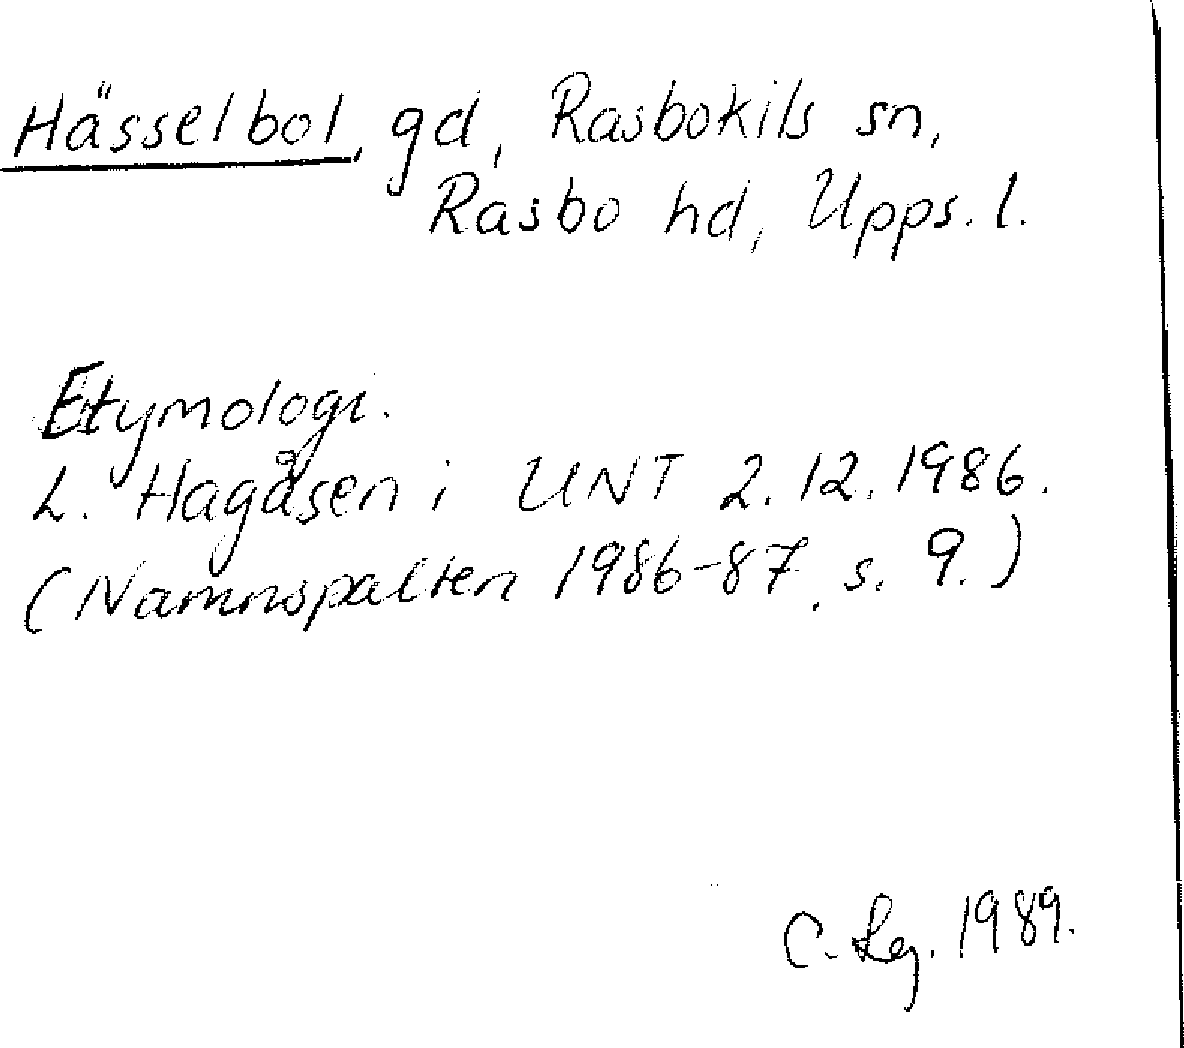 Hässelbol, gd, Rasbokils sn,
Rasbo hd, Upps. l.
Etymologi.
L. Hagåsen i UNT 2.12.1986.
(Namnspalten 1986-87, s. 9.)
C. Lg. 1989.